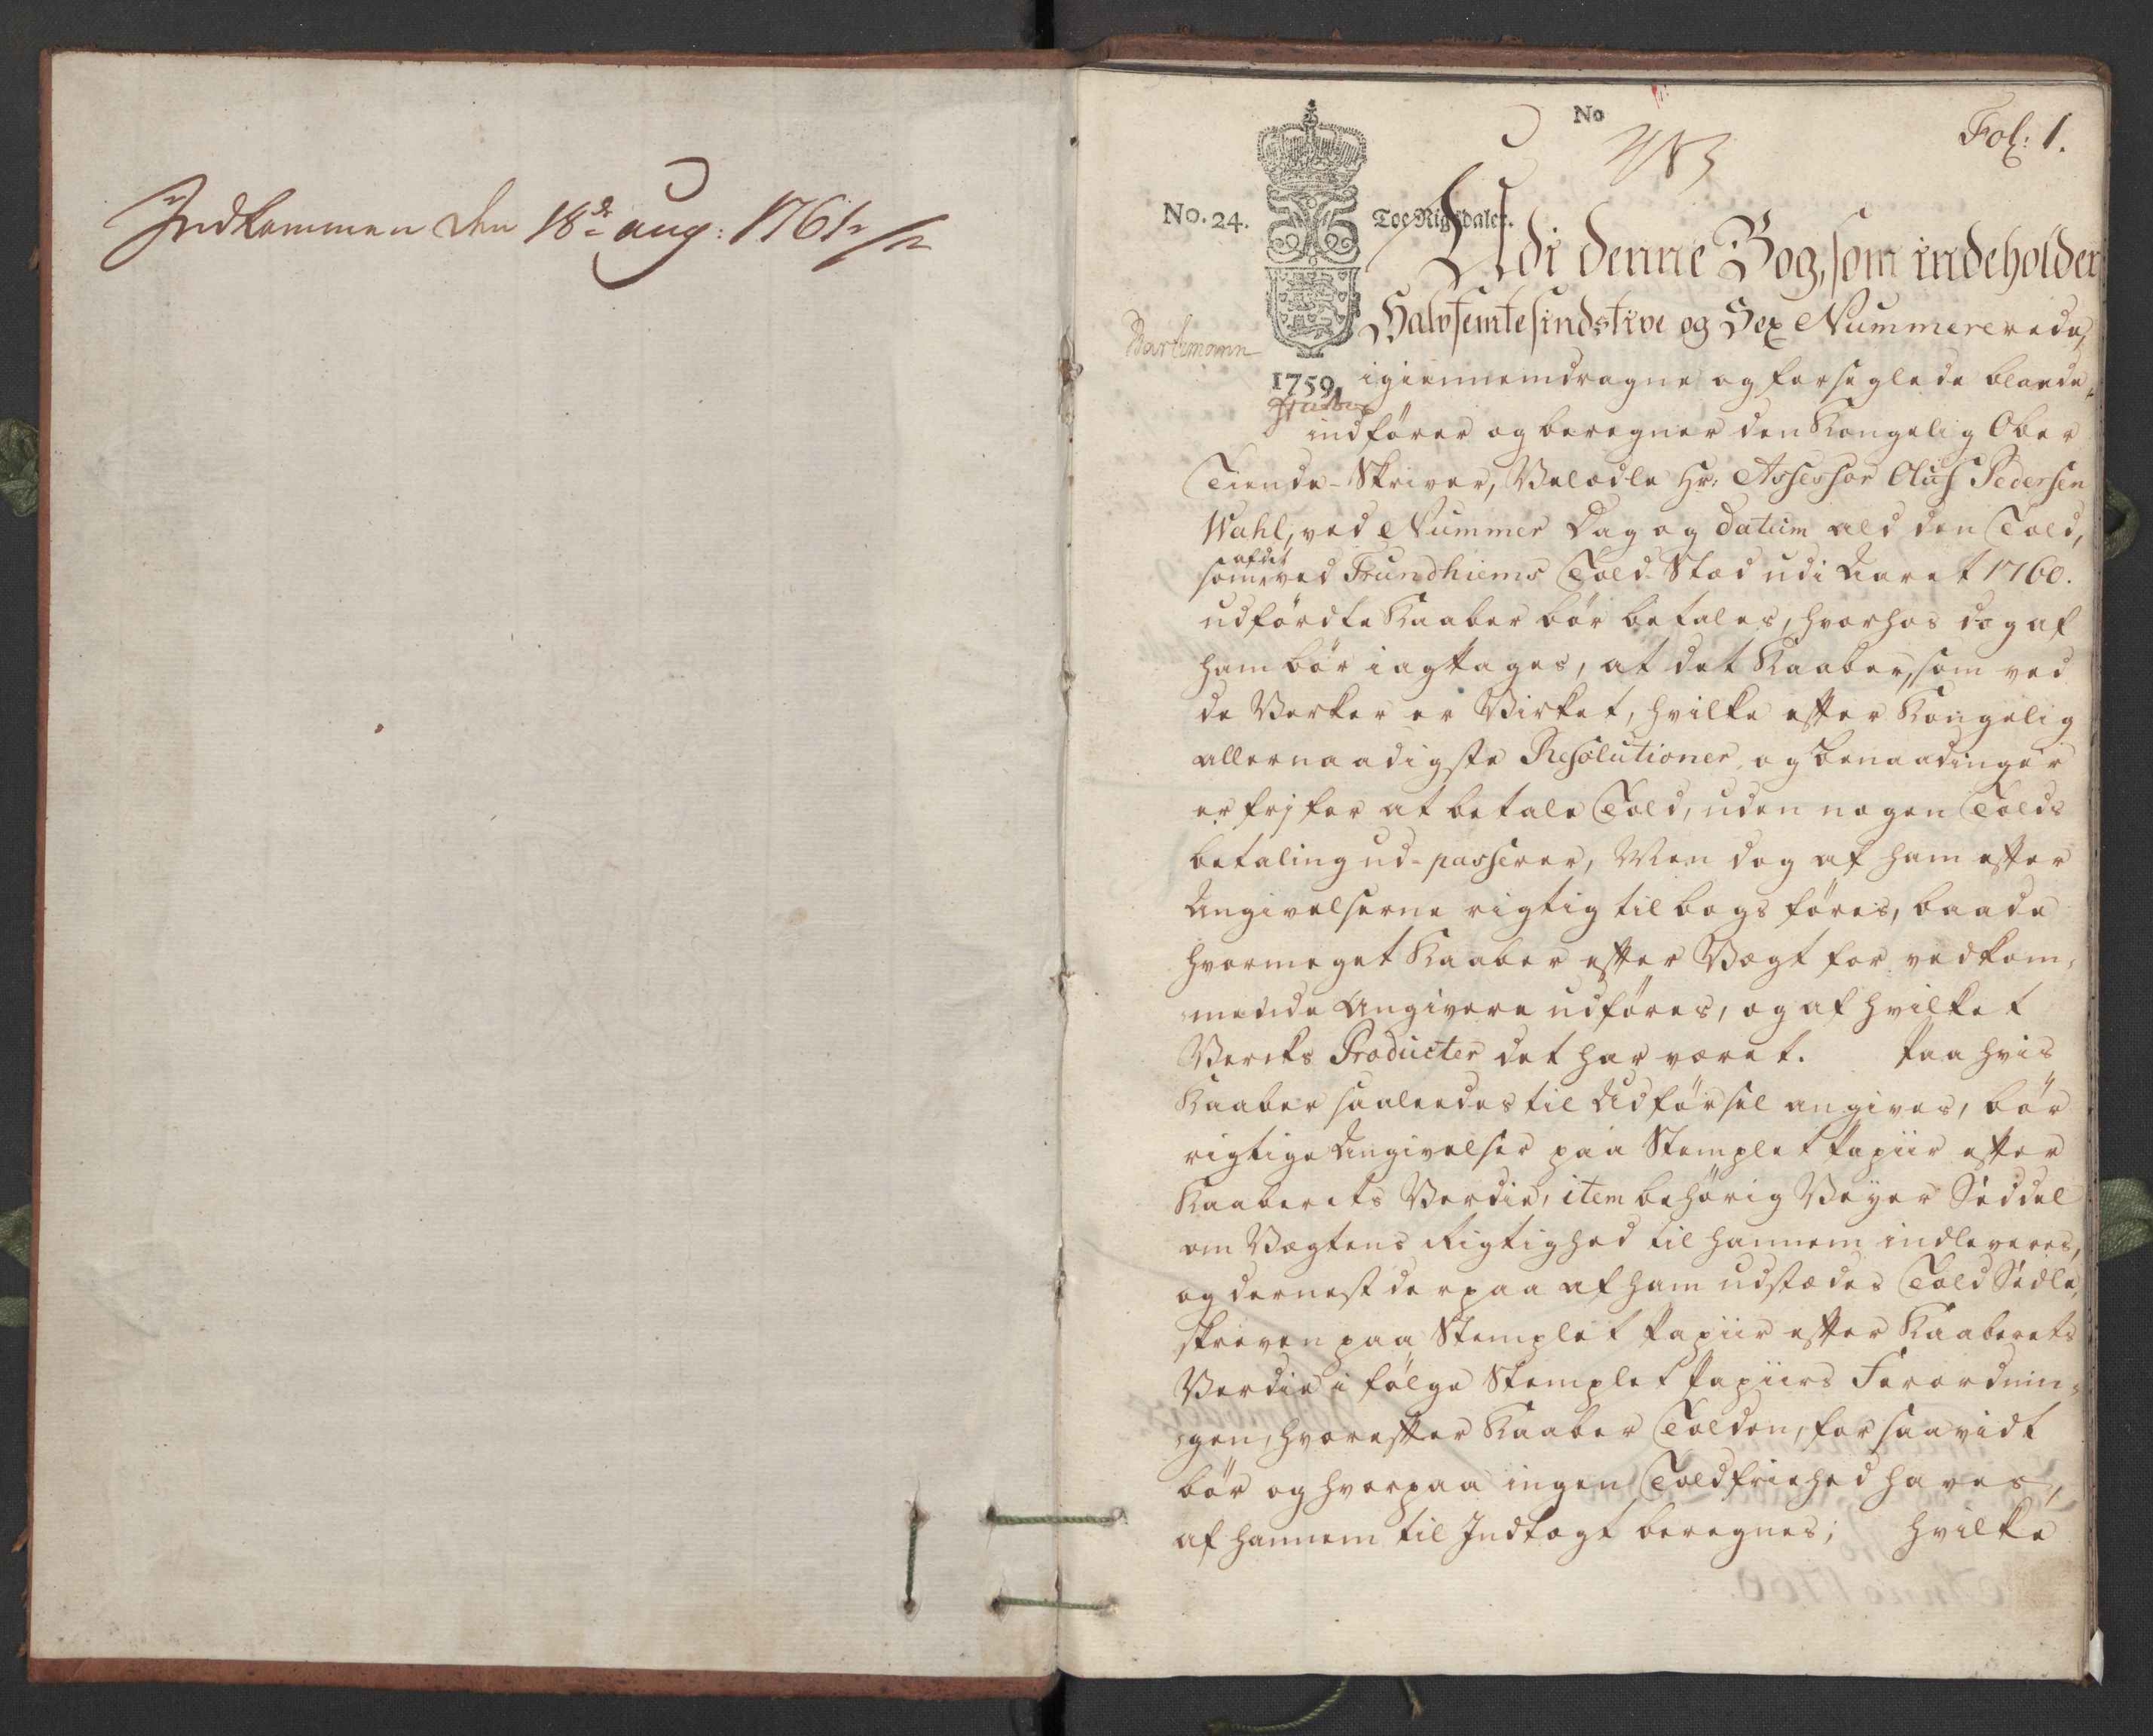 Indkommen den 18de aug: 1761
No
Fol: 1.
No. 24.
Toe Rigsdaler.
Udi denne Bog, som indeholder
Halvfemtesindstive og Sex Nummererede,
Bartemann
1759.
igiennemdragne og forseglede blade,
indfører og beregner den Kongelig Ober
Tiende-Skriver, Velædle Hr: Assessor Oluf Pedersen
Wahl, ved Nummer Dag og datum ald den Told,
af det
som ved Trundhiems Told-Stæd udi Aaret 1760.
udførdte Kaaber bør betales, hvorhos dog af
ham bør iagttages, at det Kaaber, som ved
de Verker er Virket, hvilke efter Kongelig
allernaadigste Resolutioner og benaadinger
er frj for at betale Told, uden nogen Tolds
betaling ud-passerer, Men dog af ham efter
Angivelserne rigtig til bogs føres, baade
hvormeget Kaaber efter Vegt for vedkom-
mende Angivere udføres, og af hvilket
Vercks Producter det har været. Paa hvis
Kaaber saaleedes til Udførsel angives, bør
rigtige Angivelser paa Stemplet Papiir efter
Kaaberets Verdie, item behørig Veyer Seddel
om Vegtens Rigtighed til hannem indleveres,
og dernest derpaa af ham udstædes Told Sedle,
skreven paa Stemplet Papiir efter Kaaberets
Verdie i følge Stemplet Papiirs Forordnin-
gen, hvorefter Kaaber Tolden, for saavidt
bør og hvorpaa ingen Toldfriehed haves,
af hannem til Indtægt beregnes; hvilke